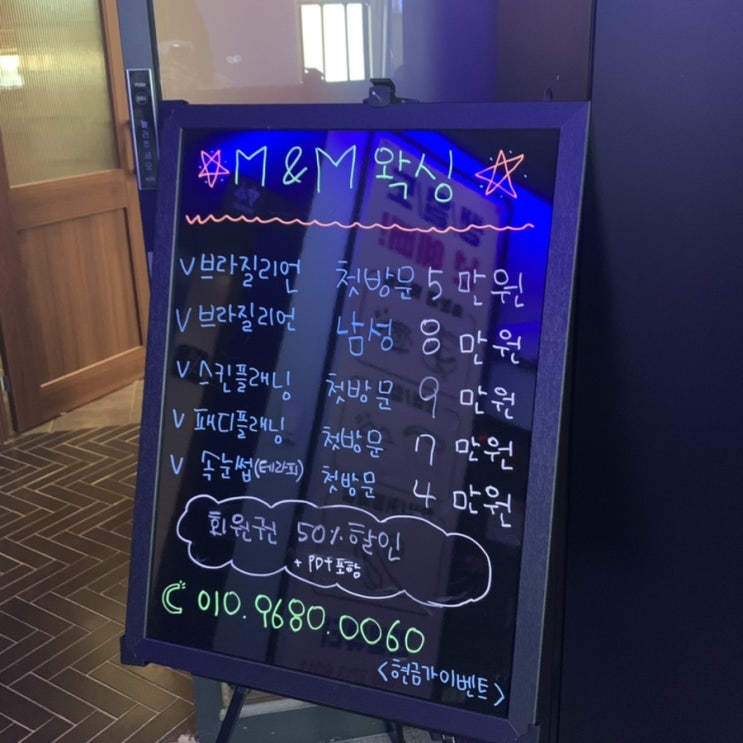 M & M 왁싱
V 브라질리언 첫방문 5 만원
V 브라질리언 남성 8 만원
V 스킨플래닝 첫방문 9 만원
V 패디플래닝 첫방문 7 만원
V 속눈썹(테라피) 첫방문 4 만원
회원권 50% 할인
+ PDT포함
010.9680.0060
<현금가이벤트>